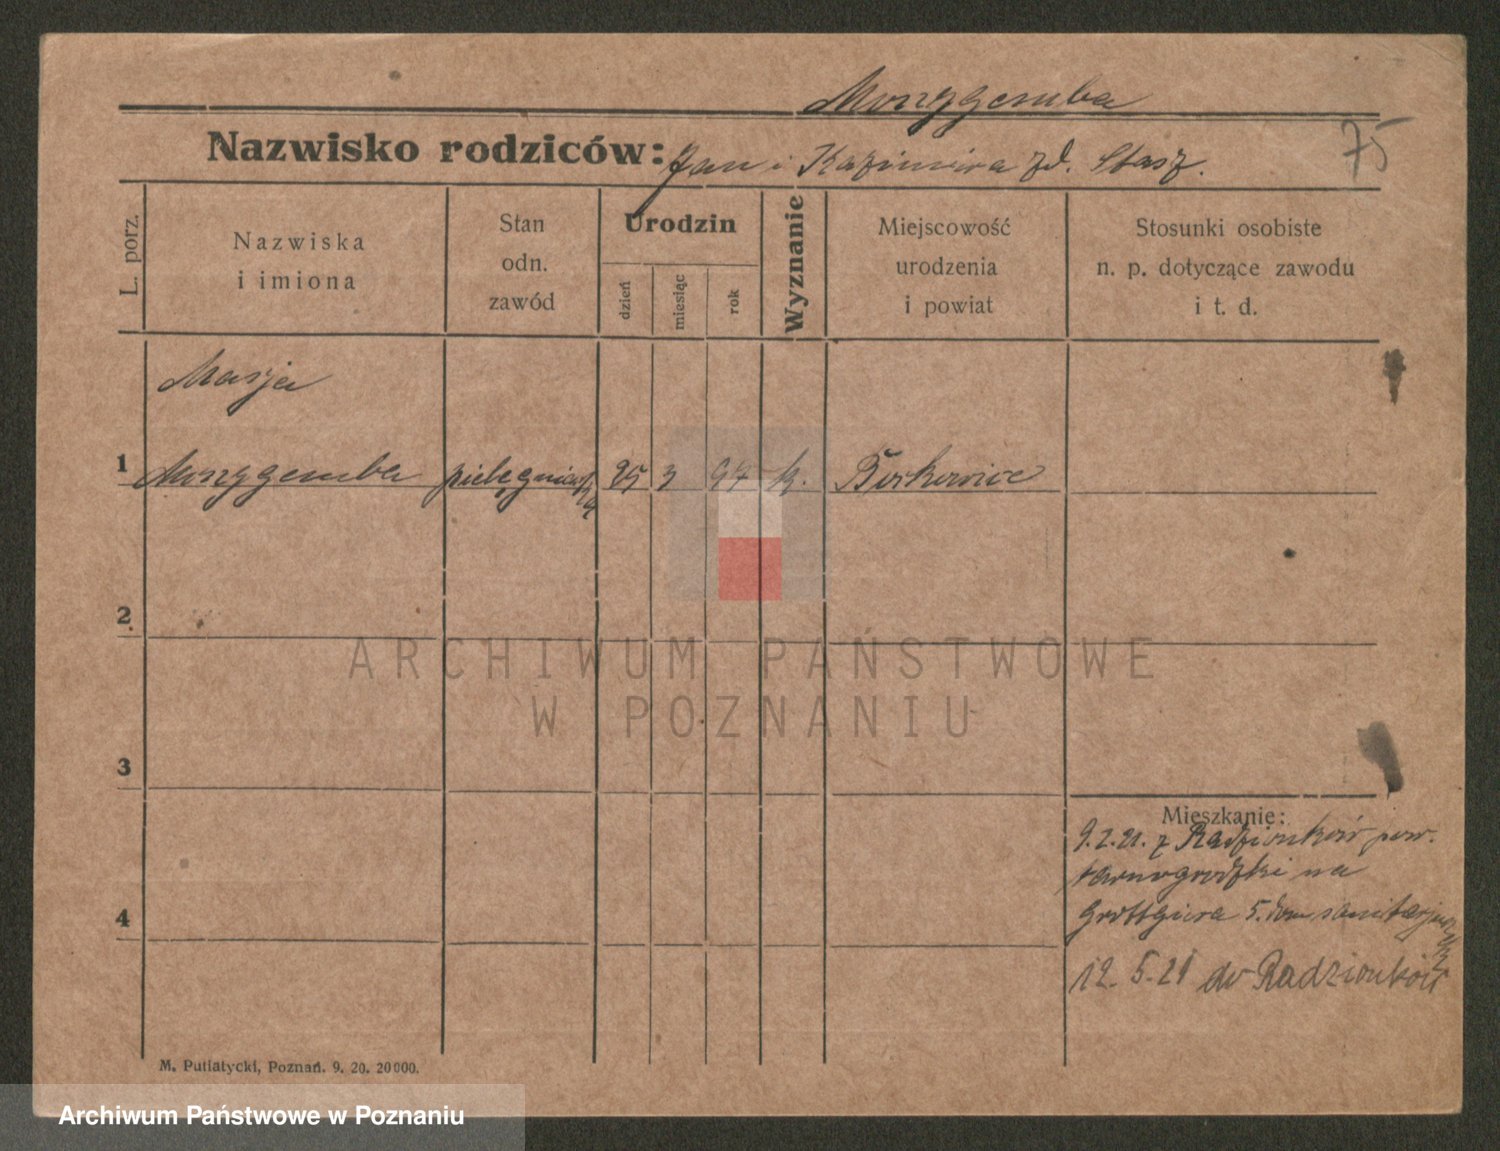 Monggemba
75
Nazwisko rodziców: Jan i Kazimiera zd. Stasz.
L. porz.
Nazwiska
i imiona
Stan
odn.
zawód
Urodzin
dzień
miesiąc
rok
Wyznanie
Miejscowość
urodzenia
i powiat
Stosunki osobiste
n. p. dotyczące zawodu
i t. d.
Marja
1 pielęgniarka 25 3 97 k. Borkowice
2
ARCHIWUM PAŃSTWOWE
W POZNANIU
3
Mieszkanie:
9.2.21. z Radzionków pow.
tarnogrodzki na
4 Grottgiera 5. dom sanitarjuszek
12.5.21 do Radzionków
M. Putiatycki, Poznań. 9. 20. 20000.
Archiwum Państwowe w Poznaniu